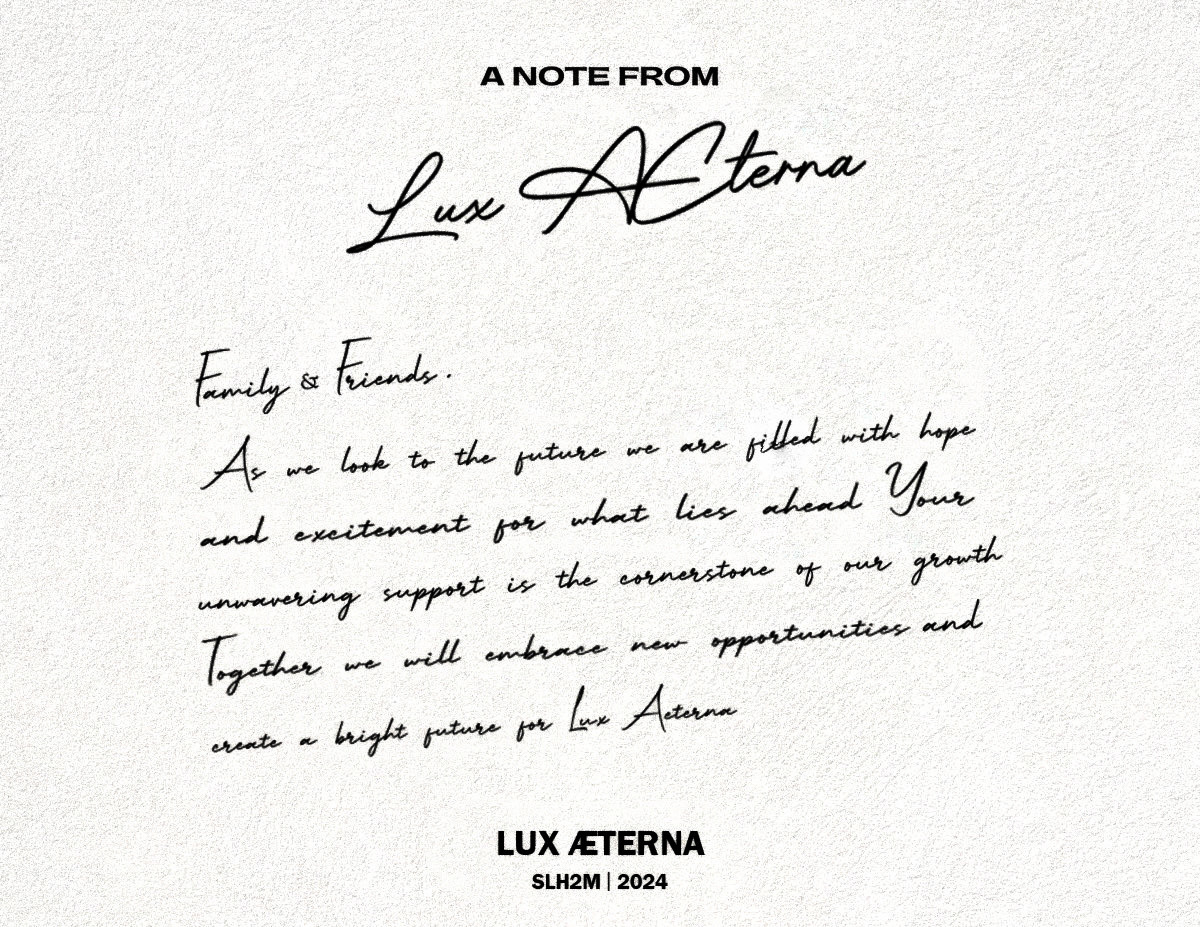 A NOTE FROM
Lux AEterna
Family & Friends.
As we look to the future we are filled with hope
and excitement for what lies ahead Your
unwavering support is the cornerstone of our growth
Together we will embrace new opportunities and
create a bright future for Lux Aeterna
LUX ÆTERNA
SLH2M | 2024